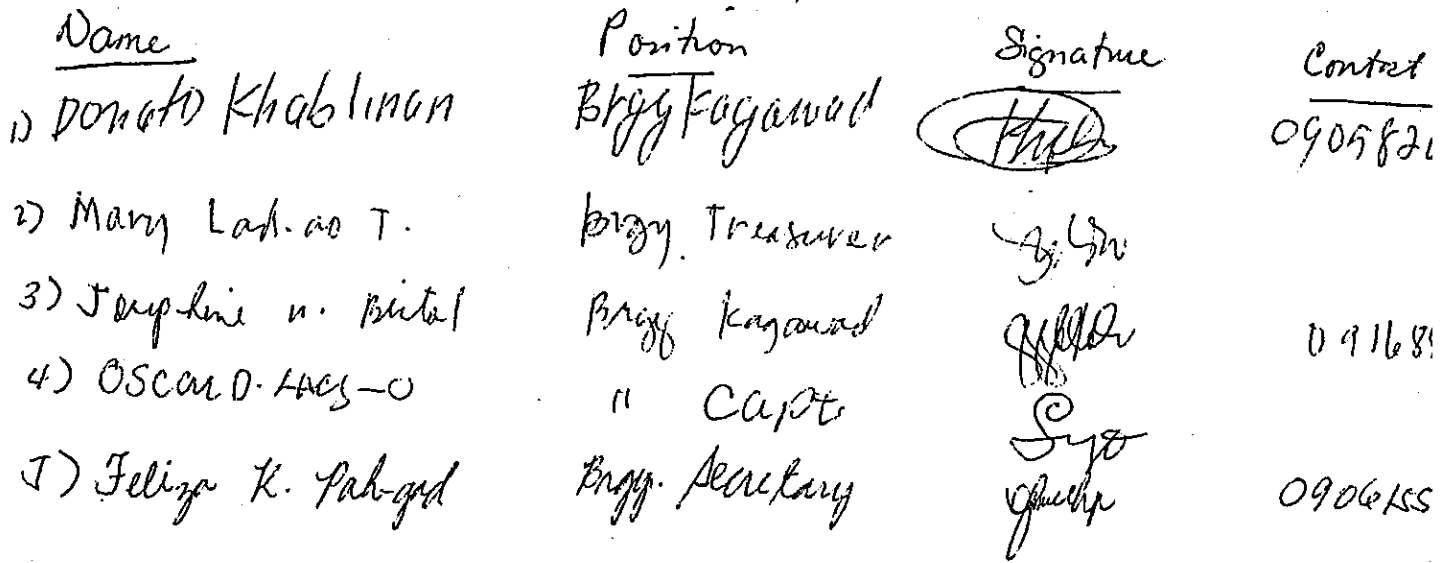 Name Position Signature Contact
1) Donato Khablinan Brgy Kagawad 090582
2) Mary Lad-ao T. brgy. Treasurer
3) Josephine n. Bital Brgy Kagawad 091689
4) OSCAR D. " Capt.
5) Feliza K. Pah-gad Brgy. Secretary 0906155